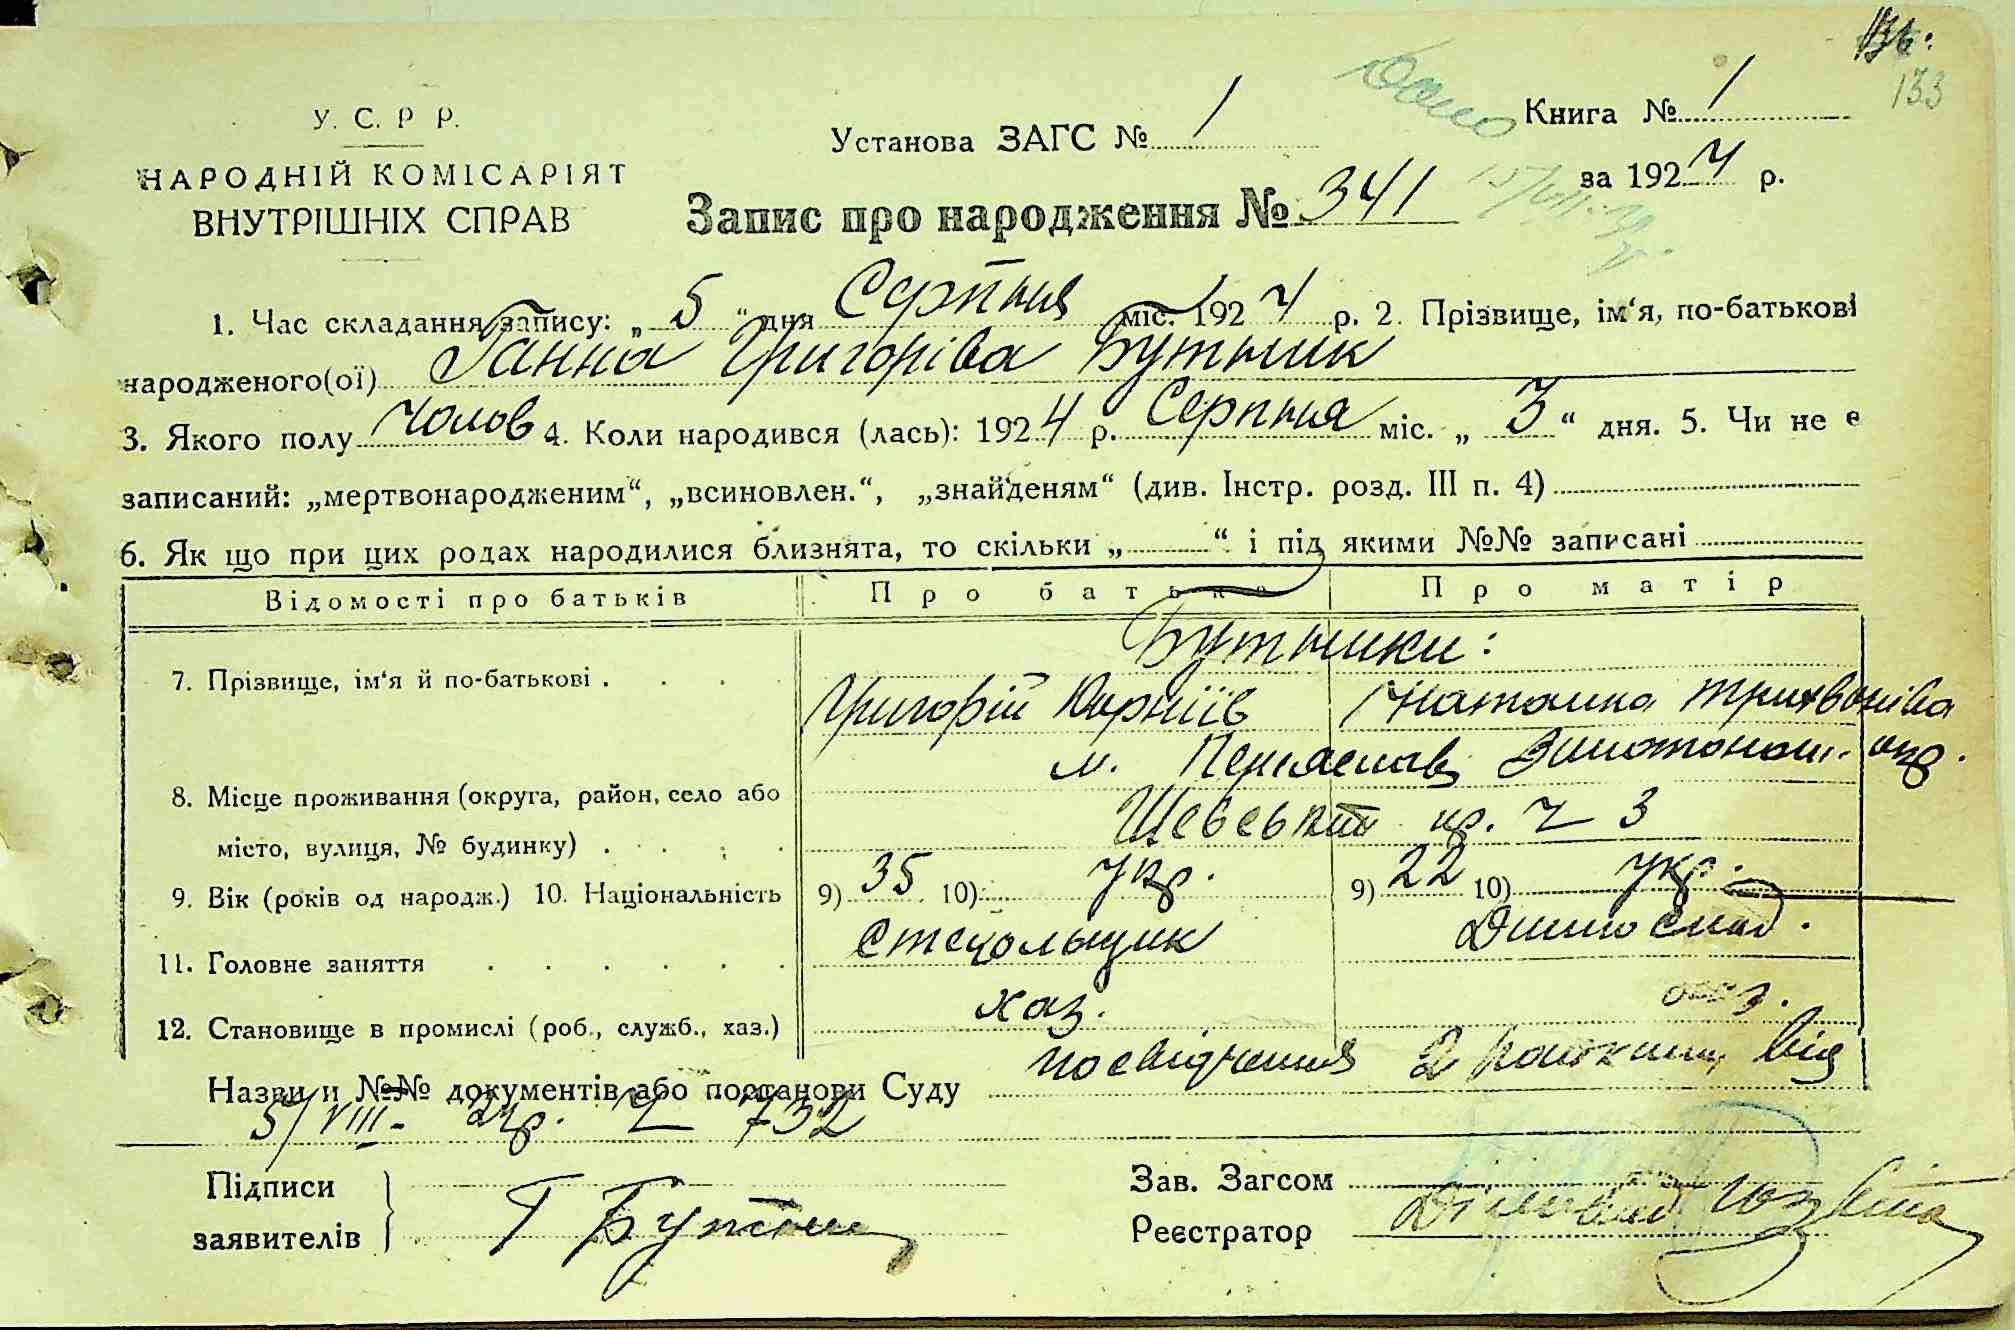 133
У. С. Р Р.
НАРОДНІЙ КОМІСАРІЯТ
ВНУТРІШНІХ СПРАВ
Установа ЗАГС № 1
Книга № 1
за 1924 р.
Запис про народження № 341
1. Час складання запису: „5“ дня Серпня міс. 1924 р. 2. Прізвище, ім‘я, по-батькові
народженого(ої) Ганна Григоріва Бутник
3. Якого полу чолов 4. Коли народився (лась): 1924 р. Серпня міс. „3“ дня. 5. Чи не є
записаний: „мертвонародженим“, „всиновлен.“, „знайденям“ (див. Інстр. розд. III п. 4)
6. Як що при цих родах народилися близнята, то скільки „ “ і під якими №№ записані
Відомості про батьків Про батька Про матір
Бутники:
7. Прізвище, ім‘я й по-батькові . . . . Григорій Корніїв Наталка Трихвонівa
м. Переяслав Золотонош. окр.
8. Місце проживання (округа, район, село або
місто, вулиця, № будинку) . . . . ч 3
9. Вік (років од народж.) 10. Національність 9) 35 10) укр. 9) 22 10) укр.
11. Головне заняття . . . . . . Стекольщик
12. Становище в промислі (роб., служб., хаз.) хаз.
Назви и №№ документів або постанови Суду посвідчення 2 від
5/VIII- ч 732
Підписи
заявителів
Г Бутник
Зав. Загсом
Реєстратор